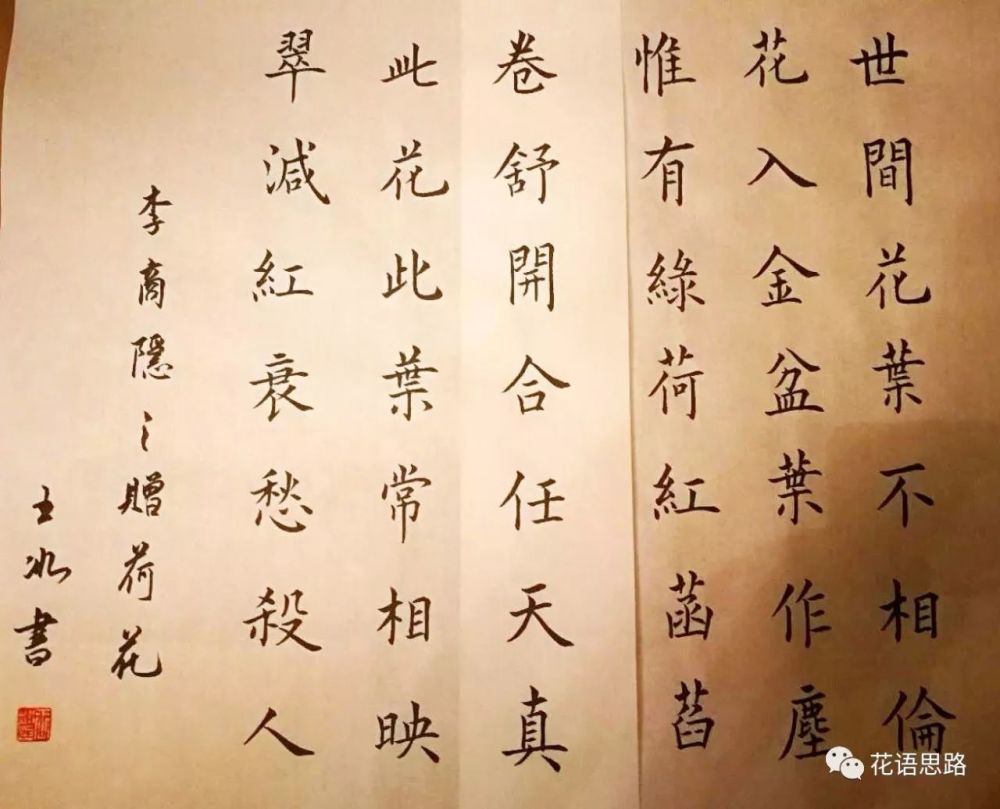 世間花葉不相倫
花入金盆葉作塵
惟有綠荷紅菡萏
卷舒開合任天真
此花此葉常相映
翠減紅衰愁殺人
李商隱之贈荷花
王冰書
花语思路